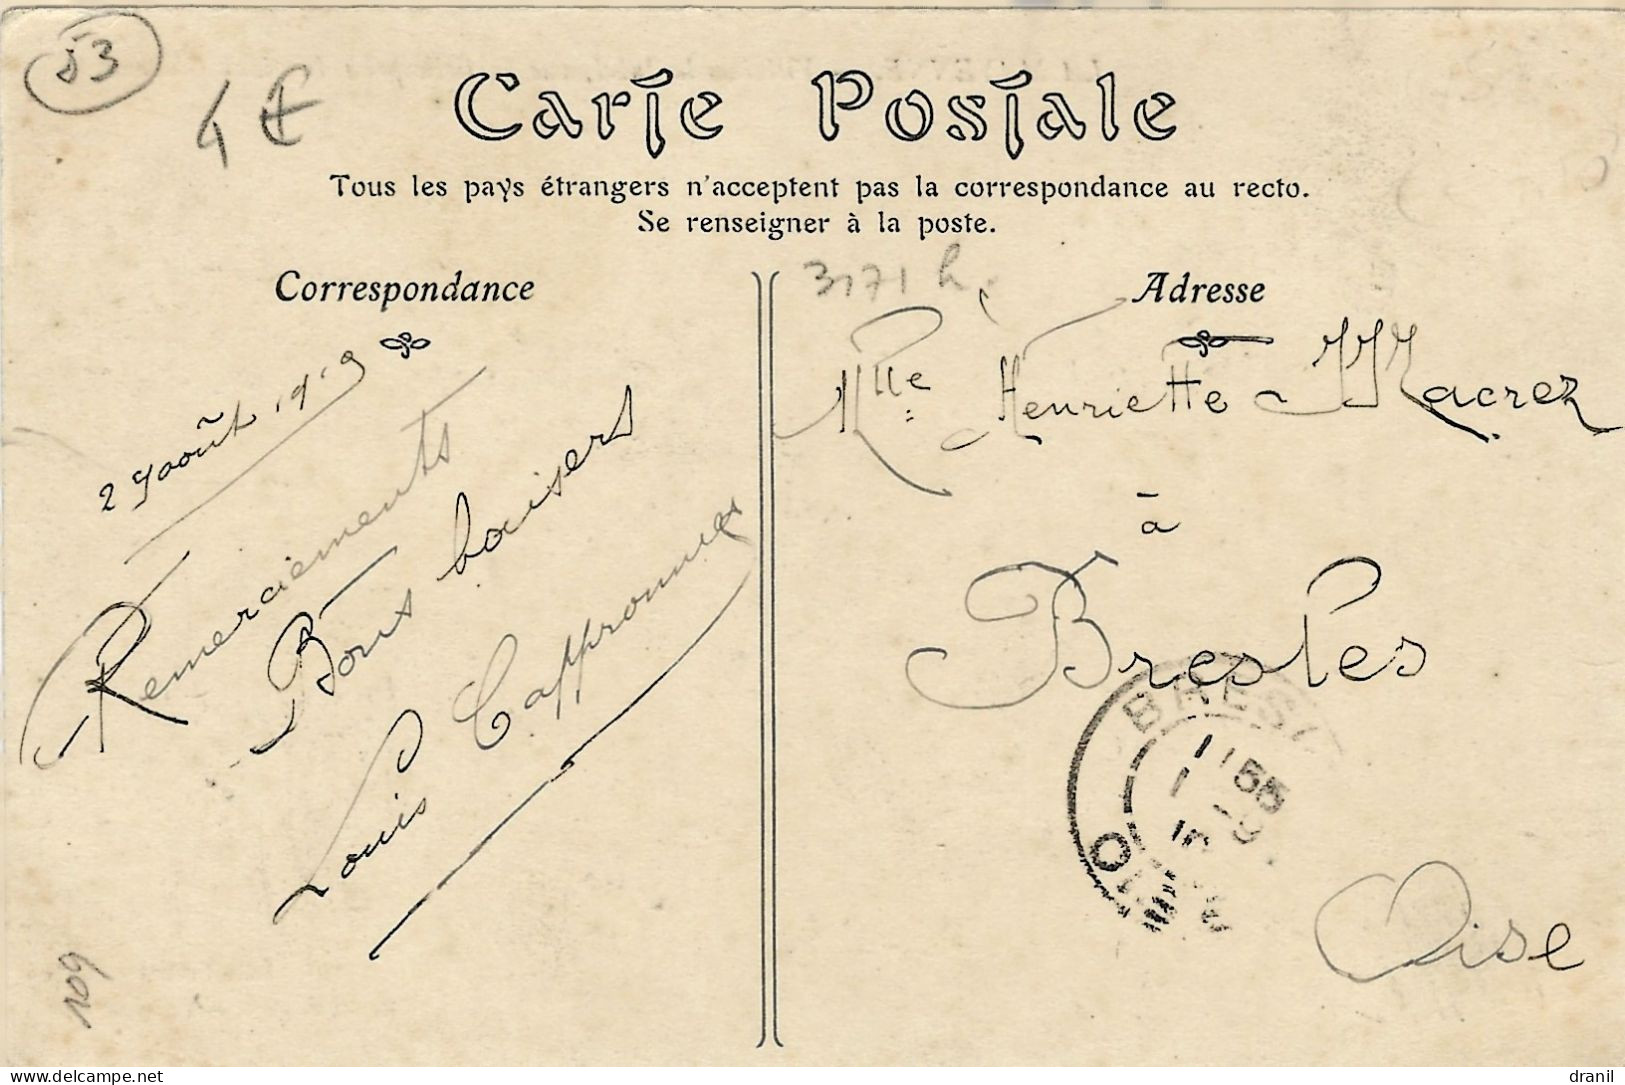 53
4 €
Carte Postale
Tous les pays étrangers n'acceptent pas la correspondance au recto.
Se renseigner à la poste.
Correspondance
Remerciements
Bons baisers
Louis Cappronnier
Adresse
Mlle Henriette Macrez
à
Bresles
Oise
BRES
OISE
Delcampe.net
dranil